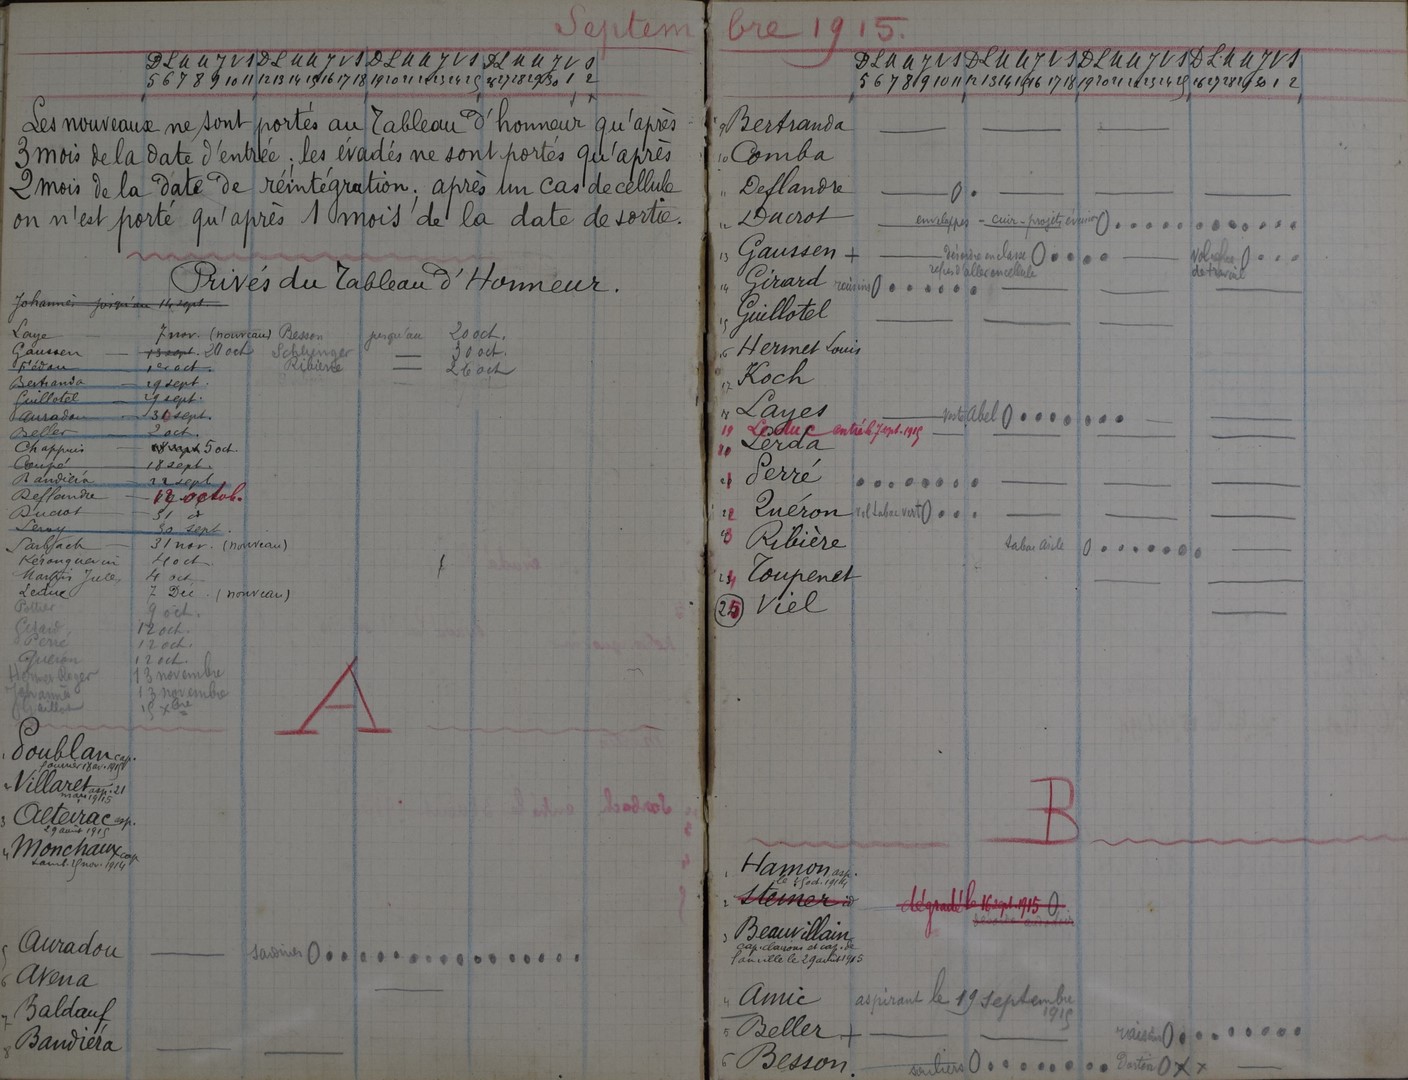 Septembre 1915.
D L M M J V S D L M M J V S D L M M J V S D L M M J V S
5 6 7 8 9 10 11 12 13 14 15 16 17 18 19 20 21 22 23 24 25 26 27 28 29 30 1 2
Les nouveaux ne sont portés au Tableau d'honneur qu'après
3 mois de la date d'entrée ; les évadés ne sont portés qu'après
2 mois de la date de réintégration ; après un cas de cellule
on n'est porté qu'après 1 mois de la date de sortie.
Privés du Tableau d'Honneur.
Johannès jusqu'au 14 sept.
Laye 7 nov. (nouveau) Besson jusqu'au 20 oct.
Gaussen — 13 sept. 20 oct — 30 oct.
Ribière — 26 oct
Bertranda — 29 sept.
Guillotel — 29 sept.
Auradou — 30 sept.
Beller — 2 oct.
Chappuis — 5 oct.
Coupé — 18 sept.
Bandiéra — 22 sept.
Deflandre — 12 octob.
Ducrot — 31 d
Leroy — 30 sept.
Sarbach — 31 nov. (nouveau)
4 oct.
Martin Jules, 4 oct.
Leduc 7 Déc. (nouveau)
9 oct.
Girard 12 oct.
Perré 12 oct.
Quéron 12 oct.
13 novembre
Johannès 13 novembre
A
1 Soublan cap.
2 Villaret asp. 21
mars 1915
3 Alteirac asp.
29 août 1915
4 Monchaux cap
5 Auradou — sardines
6 Avena
7 Baldauf
8 Bandiéra
D L M M J V S D L M M J V S D L M M J V S D L M M J V S
5 6 7 8 9 10 11 12 13 14 15 16 17 18 19 20 21 22 23 24 25 26 27 28 29 30 1 2
9 Bertranda
10 Comba
11 Deflandre
12 Ducrot enveloppes - cuir - projets évasion
13 Gaussen + désordre en classe refus d'aller en cellule
14 Girard raisins
15 Guillotel
16 Hermet Louis
17 Koch
18 Layes Abel
19 Leduc entré le 7 sept. 1915
20 Lerda
21 Perré
22 Quéron vol tabac vert
23 Ribière tabac
24 Toupenet
25 Viel
B
1 Hamon asp.
2 Steiner id dégradé le 16 sept. 1915
3 Beauvillain
cap. clairons et cap. de
famille le 29 août 1915
4 Amic aspirant le 19 septembre
1915
5 Beller + raisin
6 Besson. souliers